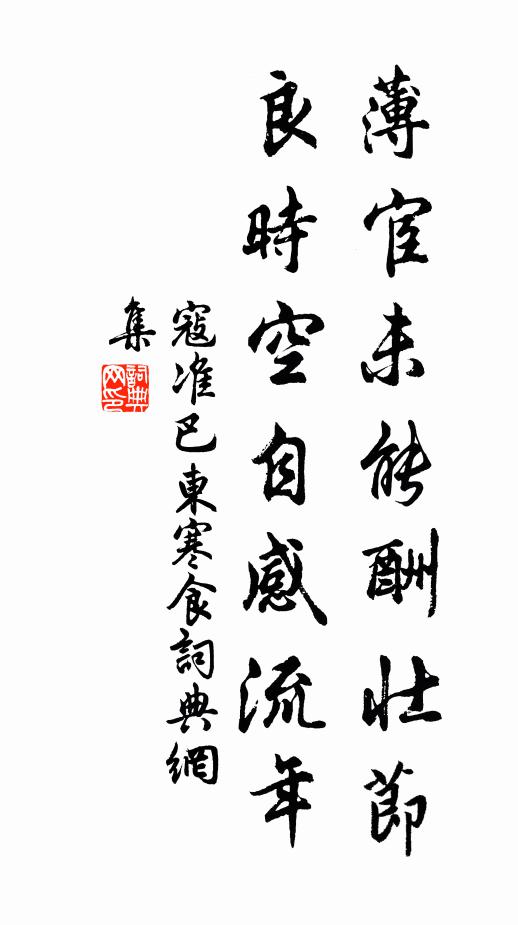 薄宦未能酬壮節
良時空自感流年
寇准巴東寒食詞典網
集
詞典
网印